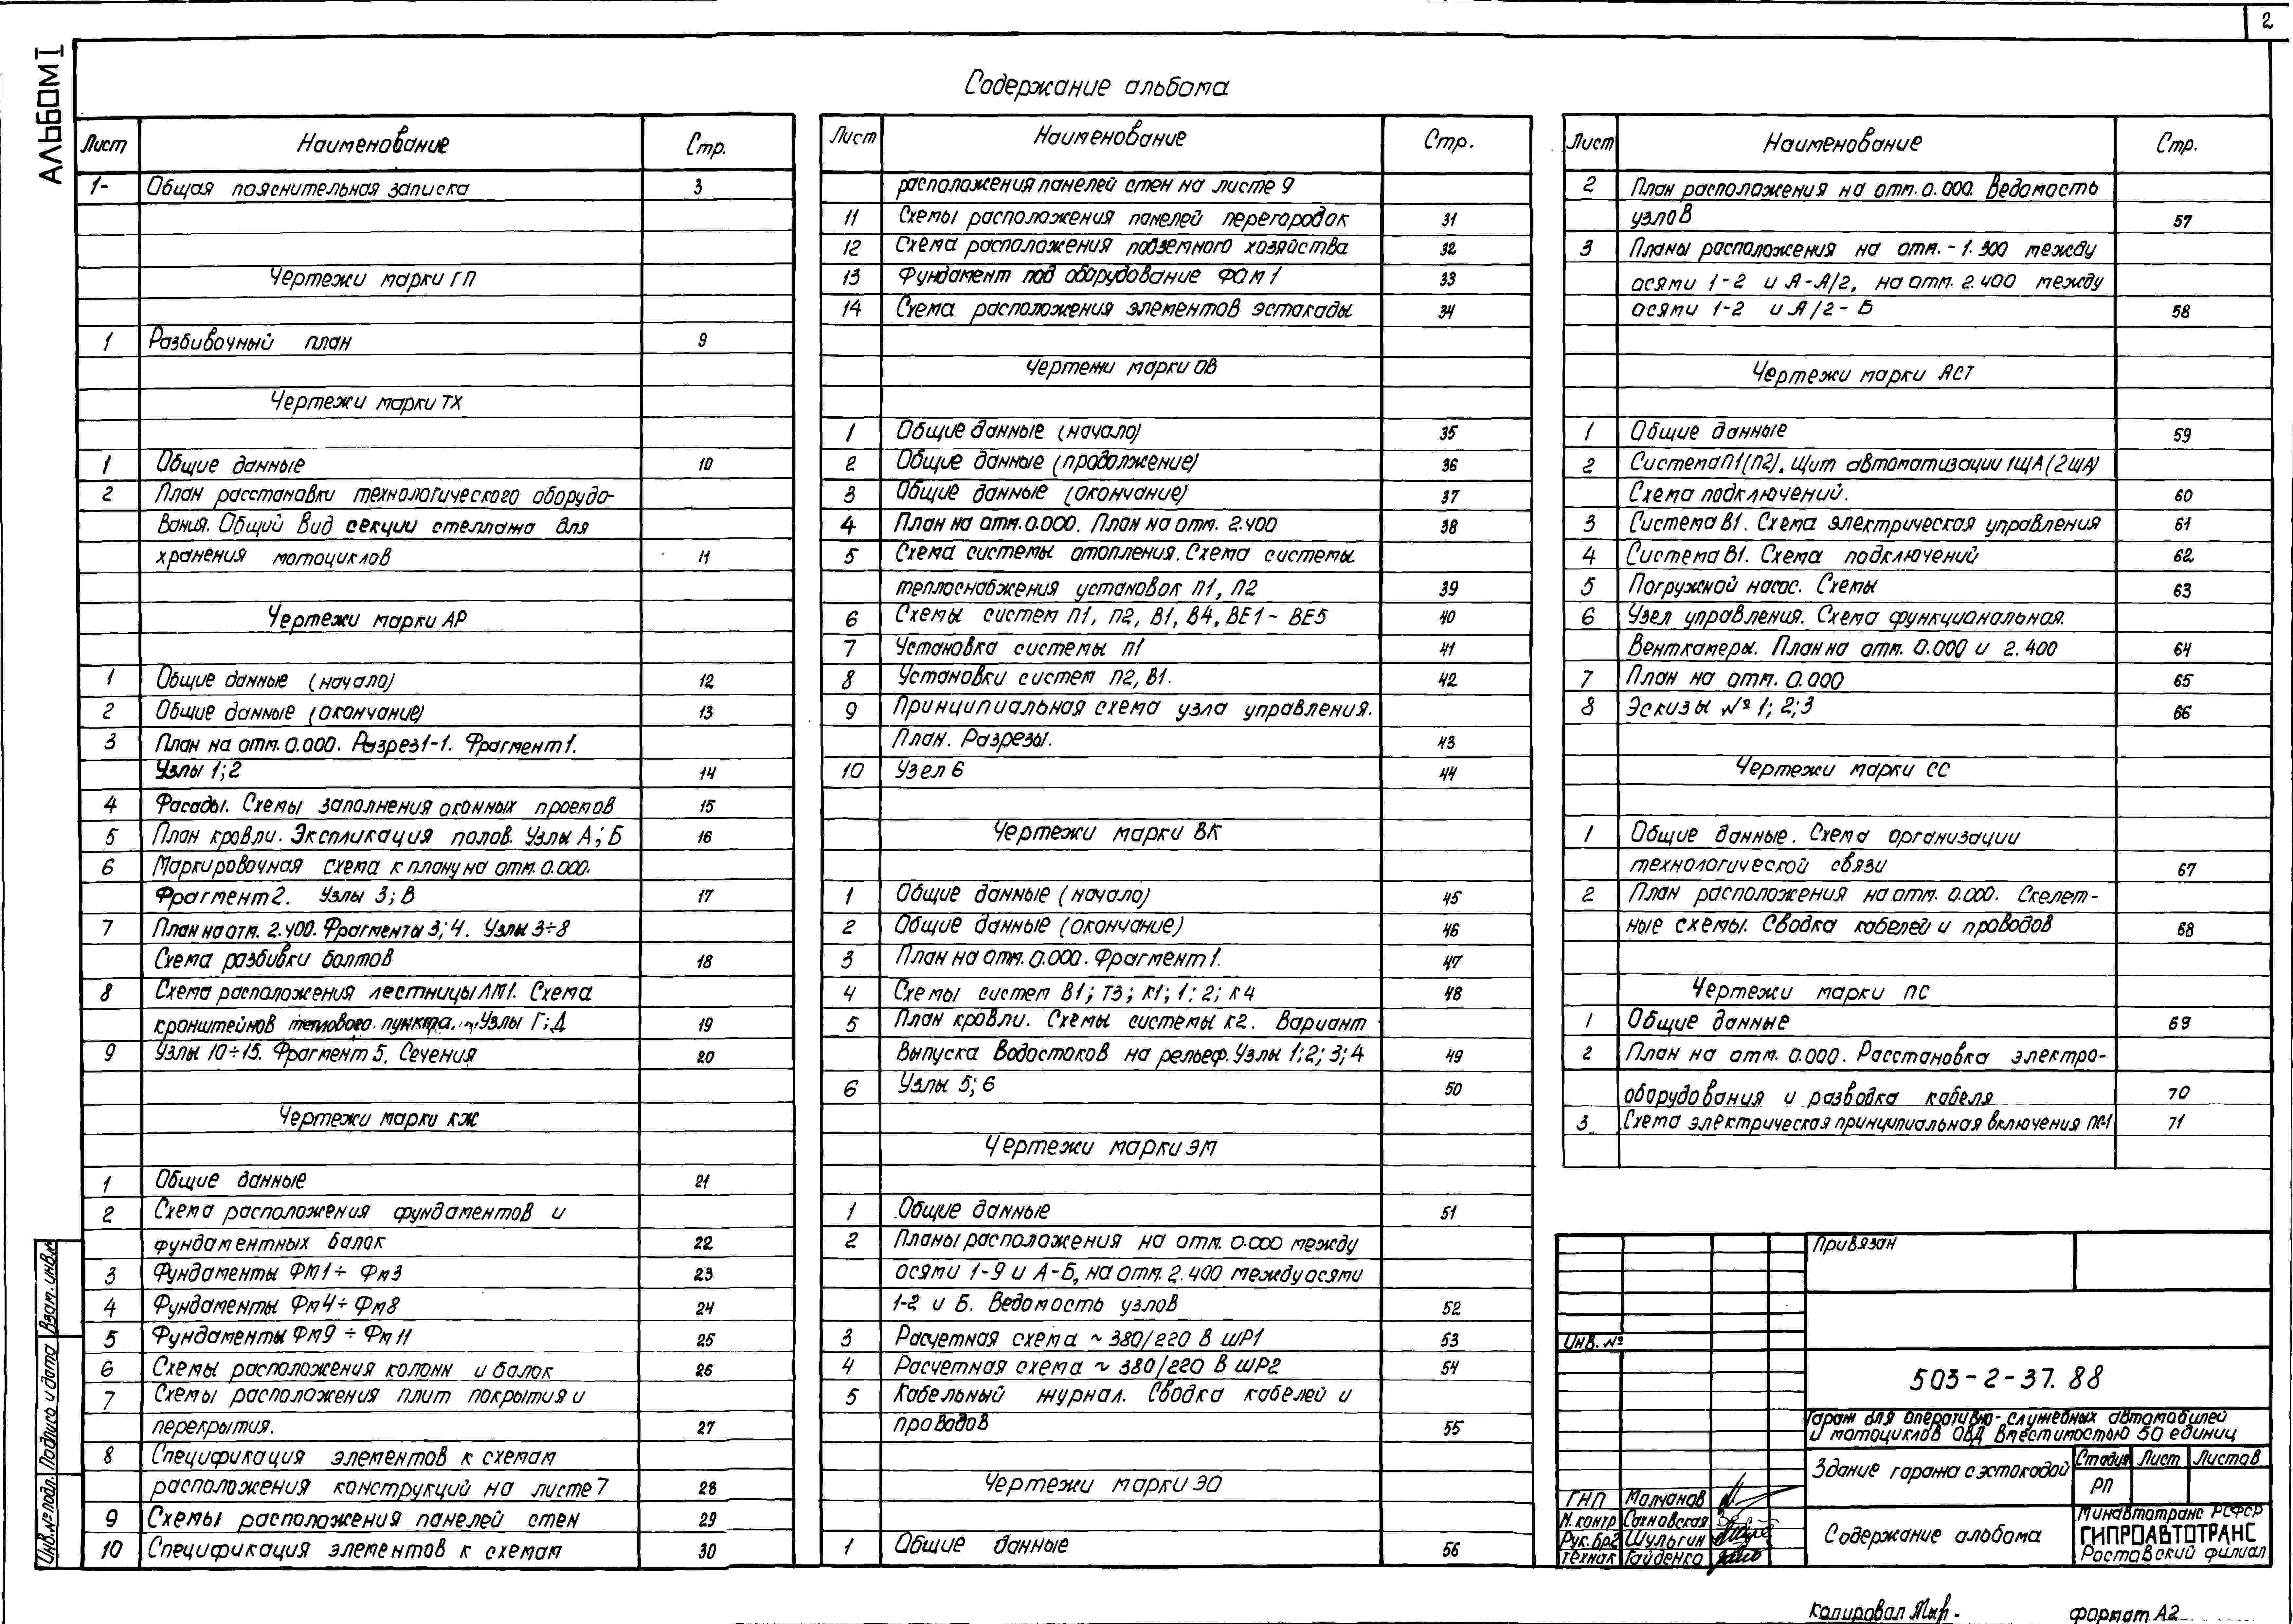 2
АЛЬБОМ I
Содержание альбома
Лист Наименование Стр.
1- Общая пояснительная записка 3
Чертежи марки ГП
1 Разбивочный план 9
Чертежи марки ТХ
1 Общие данные 10
2 План расстановки технологического оборудо-
вания. Общий вид секции стеллажа для
хранения мотоциклов 11
Чертежи марки АР
1 Общие данные (начало) 12
2 Общие данные (окончание) 13
3 План на отм. 0.000. Разрез 1-1. Фрагмент 1.
Узлы 1; 2 14
4 Фасады. Схемы заполнения оконных проемов 15
5 План кровли. Экспликация полов. Узлы А; Б 16
6 Маркировочная схема к плану на отм. 0.000.
Фрагмент 2. Узлы 3; В 17
7 План на отм. 2.400. Фрагменты 3; 4. Узлы 3÷8
Схема разбивки болтов 18
8 Схема расположения лестницы ЛМ1. Схема
кронштейнов теплового пункта. Узлы Г; Д 19
9 Узлы 10÷15. Фрагмент 5. Сечения 20
Чертежи марки КЖ
1 Общие данные 21
2 Схема расположения фундаментов и
фундаментных балок 22
3 Фундаменты ФМ1÷ Фм3 23
4 Фундаменты Фм4÷ Фм8 24
5 Фундаменты Фм9 ÷ Фм 11 25
6 Схемы расположения колонн и балок 26
7 Схемы расположения плит покрытия и
перекрытия. 27
8 Спецификация элементов к схемам
расположения конструкций на листе 7 28
9 Схемы расположения панелей стен 29
10 Спецификация элементов к схемам 30
Лист Наименование Стр.
расположения панелей стен на листе 9
11 Схемы расположения панелей перегородок 31
12 Схема расположения подземного хозяйства 32
13 Фундамент под оборудование ФОМ 1 33
14 Схема расположения элементов эстакады 34
Чертежи марки ОВ
1 Общие данные (начало) 35
2 Общие данные (продолжение) 36
3 Общие данные (окончание) 37
4 План на отм. 0.000. План на отм. 2.400 38
5 Схема системы отопления. Схема системы
теплоснабжения установок П1, П2 39
6 Схемы систем П1, П2, В1, В4, ВЕ1 - ВЕ5 40
7 Установка системы П1 41
8 Установки систем П2, В1. 42
9 Принципиальная схема узла управления.
План. Разрезы. 43
10 Узел 6 44
Чертежи марки ВК
1 Общие данные (начало) 45
2 Общие данные (окончание) 46
3 План на отм. 0.000. Фрагмент 1. 47
4 Схемы систем В1; Т3; К1; 1; 2; К4 48
5 План кровли. Схемы системы К2. Вариант
выпуска водостоков на рельеф. Узлы 1; 2; 3; 4 49
6 Узлы 5; 6 50
Чертежи марки ЭМ
1 Общие данные 51
2 Планы расположения на отм. 0.000 между
осями 1-9 и А-Б, на отм. 2.400 между осями
1-2 и Б. Ведомость узлов 52
3 Расчетная схема ~ 380/220 В ШР1 53
4 Расчетная схема ~ 380/220 В ШР2 54
5 Кабельный журнал. Сводка кабелей и
проводов 55
Чертежи марки ЭО
1 Общие данные 56
Лист Наименование Стр.
2 План расположения на отм. 0.000. Ведомость
узлов 57
3 Планы расположения на отм. - 1.300 между
осями 1-2 и А-А/2, на отм. 2.400 между
осями 1-2 и А/2 - Б 58
Чертежи марки АСТ
1 Общие данные 59
2 Система П1 (П2). Щит автоматизации 1ЩА (2ЩА)
Схема подключений. 60
3 Система В1. Схема электрическая управления 61
4 Система В1. Схема подключений 62
5 Погружной насос. Схемы 63
6 Узел управления. Схема функциональная.
Венткамеры. План на отм. 0.000 и 2.400 64
7 План на отм. 0.000 65
8 Эскизы № 1; 2; 3 66
Чертежи марки СС
1 Общие данные. Схема организации
технологической связи 67
2 План расположения на отм. 0.000. Скелет-
ные схемы. Сводка кабелей и проводов 68
Чертежи марки ПС
1 Общие данные 69
2 План на отм. 0.000. Расстановка электро-
оборудования и разводка кабеля 70
3 Схема электрическая принципиальная включения ПС-1 71
Привязан
Инв. №
503-2-37.88
Гараж для оперативно-служебных автомобилей
и мотоциклов ОВД вместимостью 50 единиц
Здание гаража с эстакадой
Стадия Лист Листов
РП
ГНП Молчанов
Н.контр Сахновская
Рук.бр2 Шульгин
Техник Гайденко
Содержание альбома
Минавтотранс РСФСР
ГИПРОАВТОТРАНС
Ростовский филиал
Инв.№подл. Подпись и дата Взам.инв.№
Копировал
формат А2